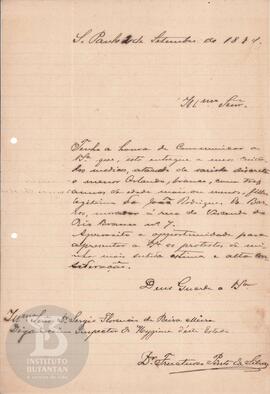 S. Paulo 2 de Setembro de 1891.
Illmo Snr.
Tenho a honra de communicar a
Va que, esta entregue a meus cuida-
dos medicos, atacado de variola discreta
o menor Orlando, branco, com tres
annos de edade mais ou menos, filho
legitimo de João Rodrigues de Bar-
ros, morador á rua do Visconde do
Rio Branco nº 7.
Aproveito a opportunidade para
apresentar a Va os protestos de mi-
nha mais subida estima e alta con-
sideração.
Deus Guarde a Va
Illmo Snr. Dr. Sergio Florencio de Paiva Meira
Digníssimo Inspector de Hygiene d'este Estado
Dr. Fructuoso Pinto da Silva
INSTITUTO
BUTANTAN